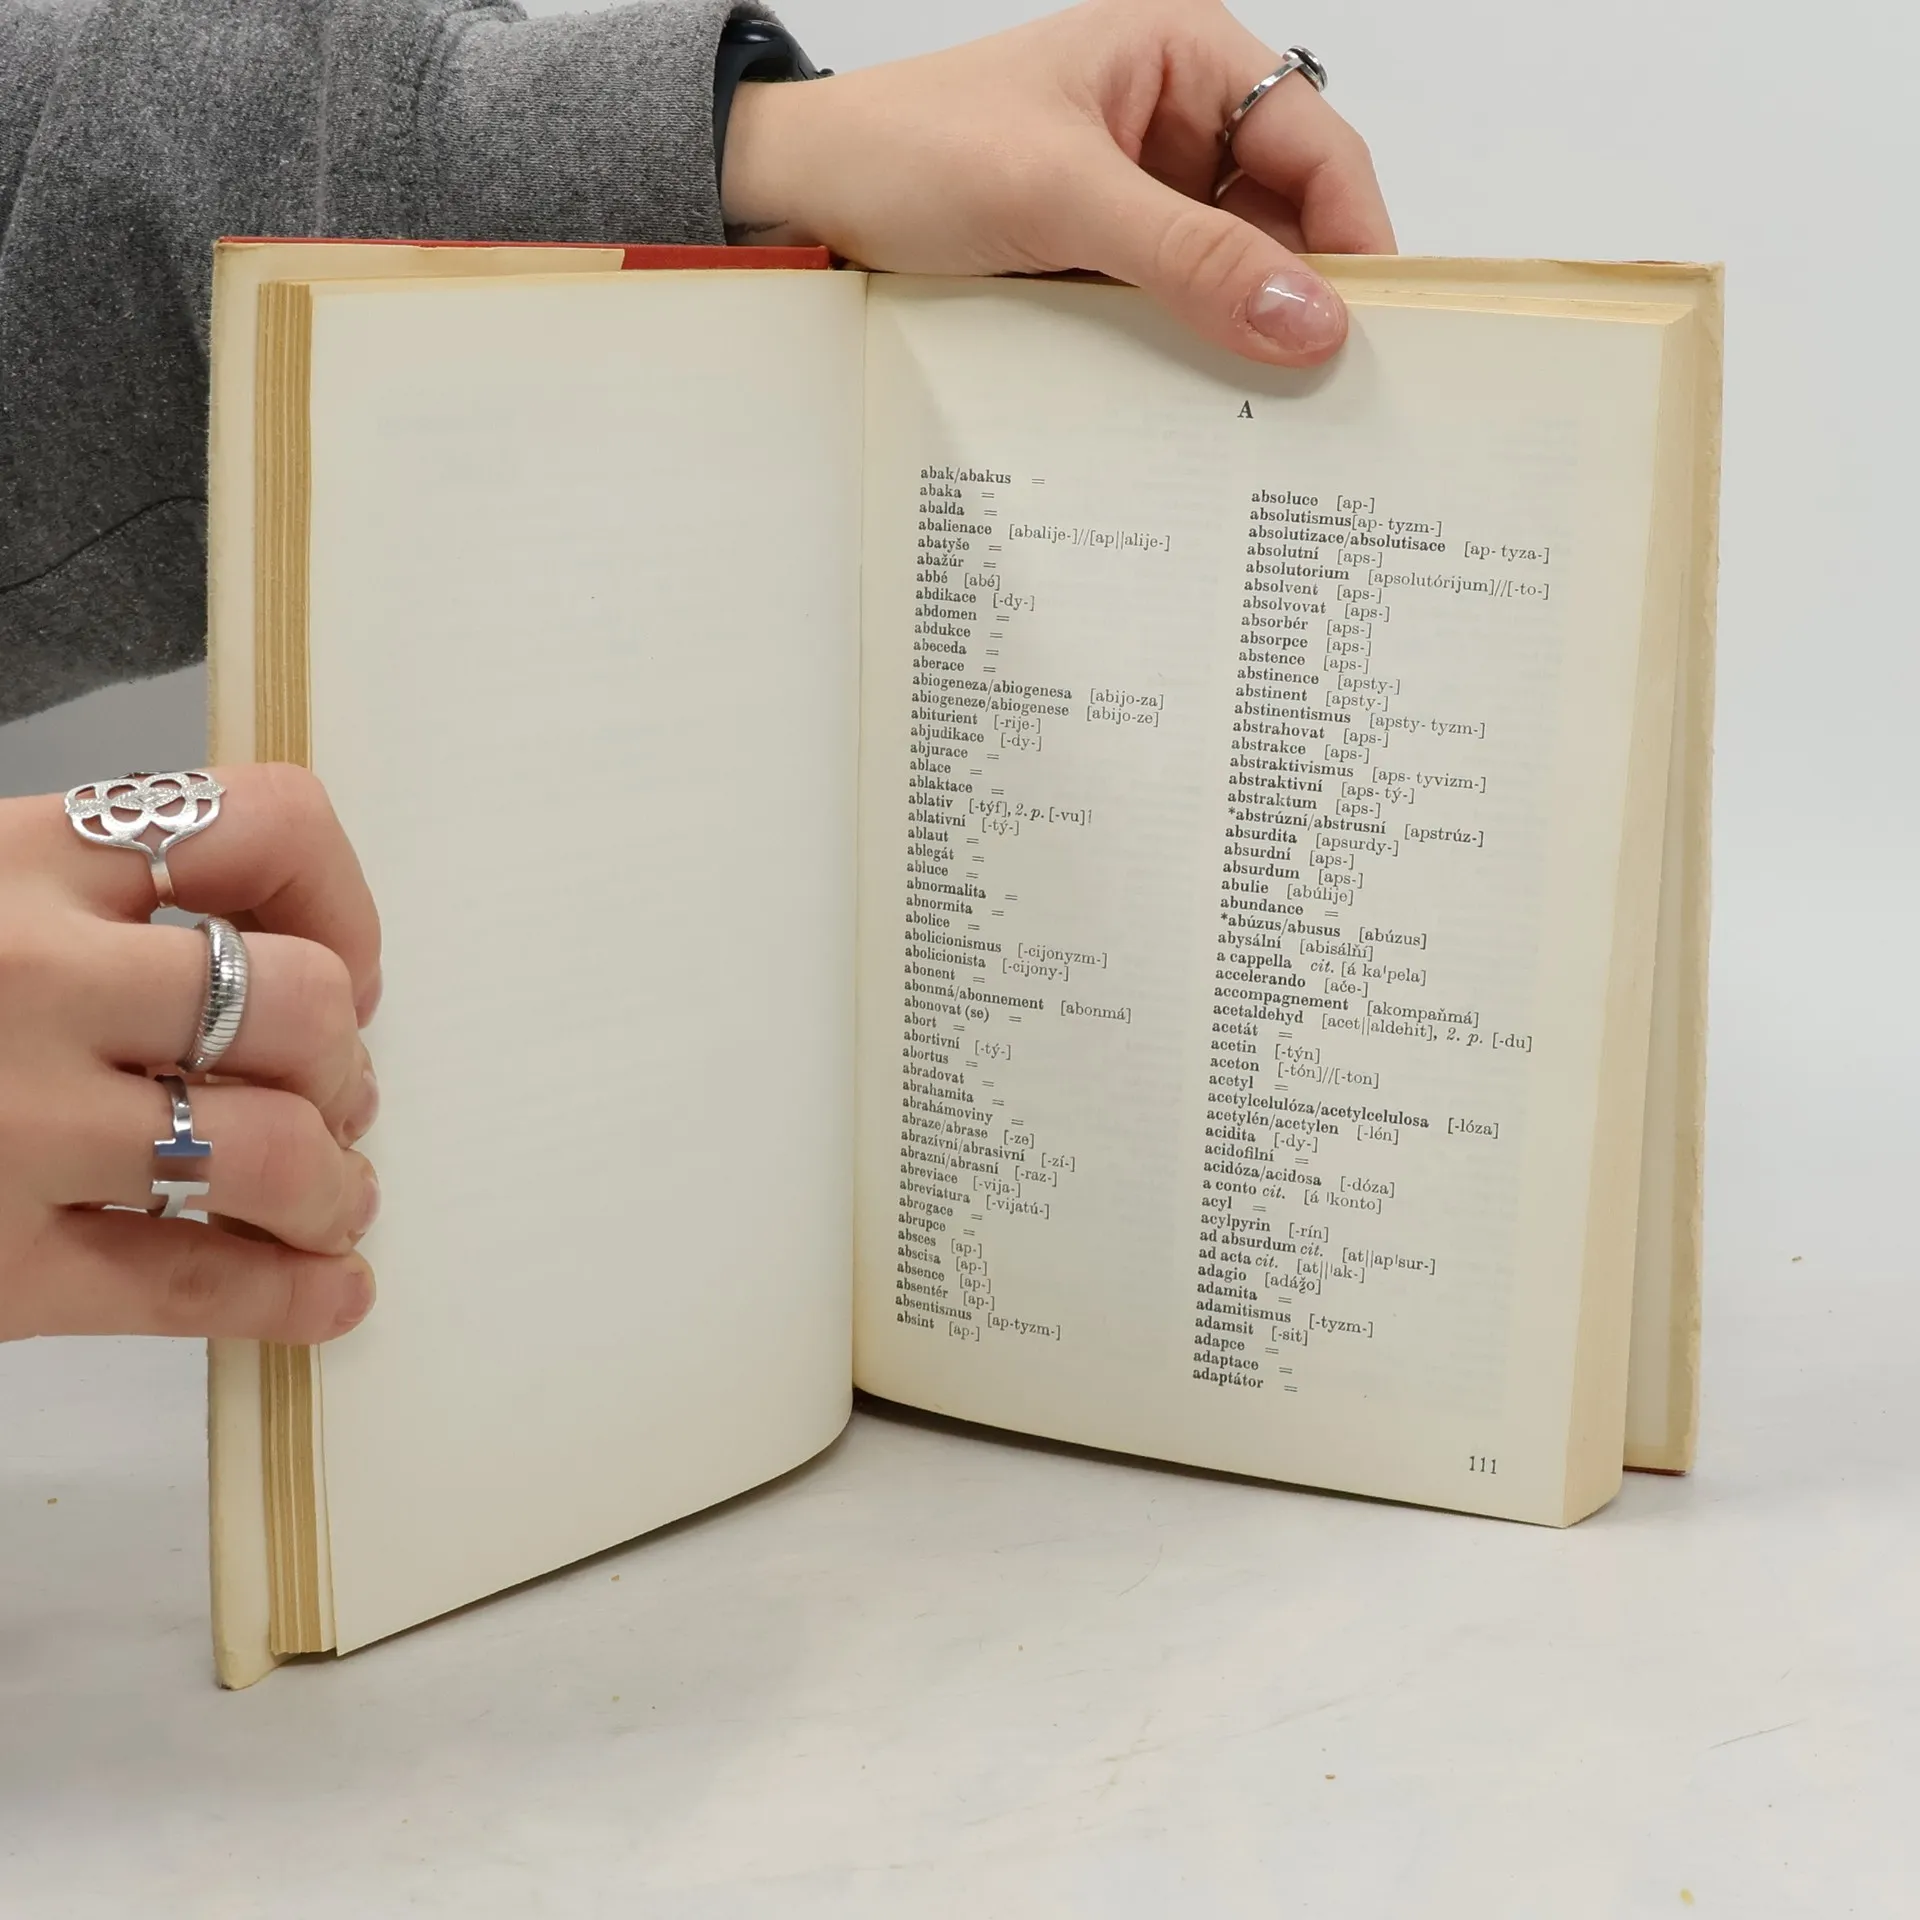 A
abak/abakus =
abaka =
abalda =
abalienace [abalije-]//[ap||alije-]
abatyše =
abažúr =
abbé [abé]
abdikace [-dy-]
abdomen =
abdukce =
abeceda =
aberace =
abiogeneza/abiogenesa [abijo-za]
abiogeneze/abiogenese [abijo-ze]
abiturient [-rije-]
abjudikace [-dy-]
abjurace =
ablace =
ablaktace =
ablativ [-týf], 2. p. [-vu]
ablativní [-tý-]
ablaut =
ablegát =
abluce =
abnormalita =
abnormita =
abolice =
abolicionismus [-cijonyzm-]
abolicionista [-cijony-]
abonent =
abonmá/abonnement [abonmá]
abonovat (se) =
abort =
abortivní [-tý-]
abortus =
abradovat =
abrahamita =
abrahámoviny =
abraze/abrase [-ze]
abrazívní/abrasivní [-zí-]
abrazní/abrasní [-raz-]
abreviace [-vija-]
abreviatura [-vijatú-]
abrogace =
abrupce =
absces [ap-]
abscisa [ap-]
absence [ap-]
absentér [ap-]
absentismus [ap-tyzm-]
absint [ap-]
absoluce [ap-]
absolutismus[ap- tyzm-]
absolutizace/absolutisace [ap- tyza-]
absolutní [aps-]
absolutorium [apsolutórijum]//[-to-]
absolvent [aps-]
absolvovat [aps-]
absorbér [aps-]
absorpce [aps-]
abstence [aps-]
abstinence [apsty-]
abstinent [apsty-]
abstinentismus [apsty- tyzm-]
abstrahovat [aps-]
abstrakce [aps-]
abstraktivismus [aps- tyvizm-]
abstraktivní [aps- tý-]
abstraktum [aps-]
*abstrúzní/abstrusní [apstrúz-]
absurdita [apsurdy-]
absurdní [aps-]
absurdum [aps-]
abulie [abúlije]
abundance =
*abúzus/abusus [abúzus]
abysální [abisálňí]
a cappella cit. [á kaˈpela]
accelerando [ače-]
accompagnement [akompaňmá]
acetaldehyd [acet||aldehit], 2. p. [-du]
acetát =
acetin [-týn]
aceton [-tón]//[-ton]
acetyl =
acetylcelulóza/acetylcelulosa [-lóza]
acetylén/acetylen [-lén]
acidita [-dy-]
acidofilní =
acidóza/acidosa [-dóza]
a conto cit. [á ˈkonto]
acyl =
acylpyrin [-rín]
ad absurdum cit. [at||apˈsur-]
ad acta cit. [at||ˈak-]
adagio [adážo]
adamita =
adamitismus [-tyzm-]
adamsit [-sit]
adapce =
adaptace =
adaptátor =
111